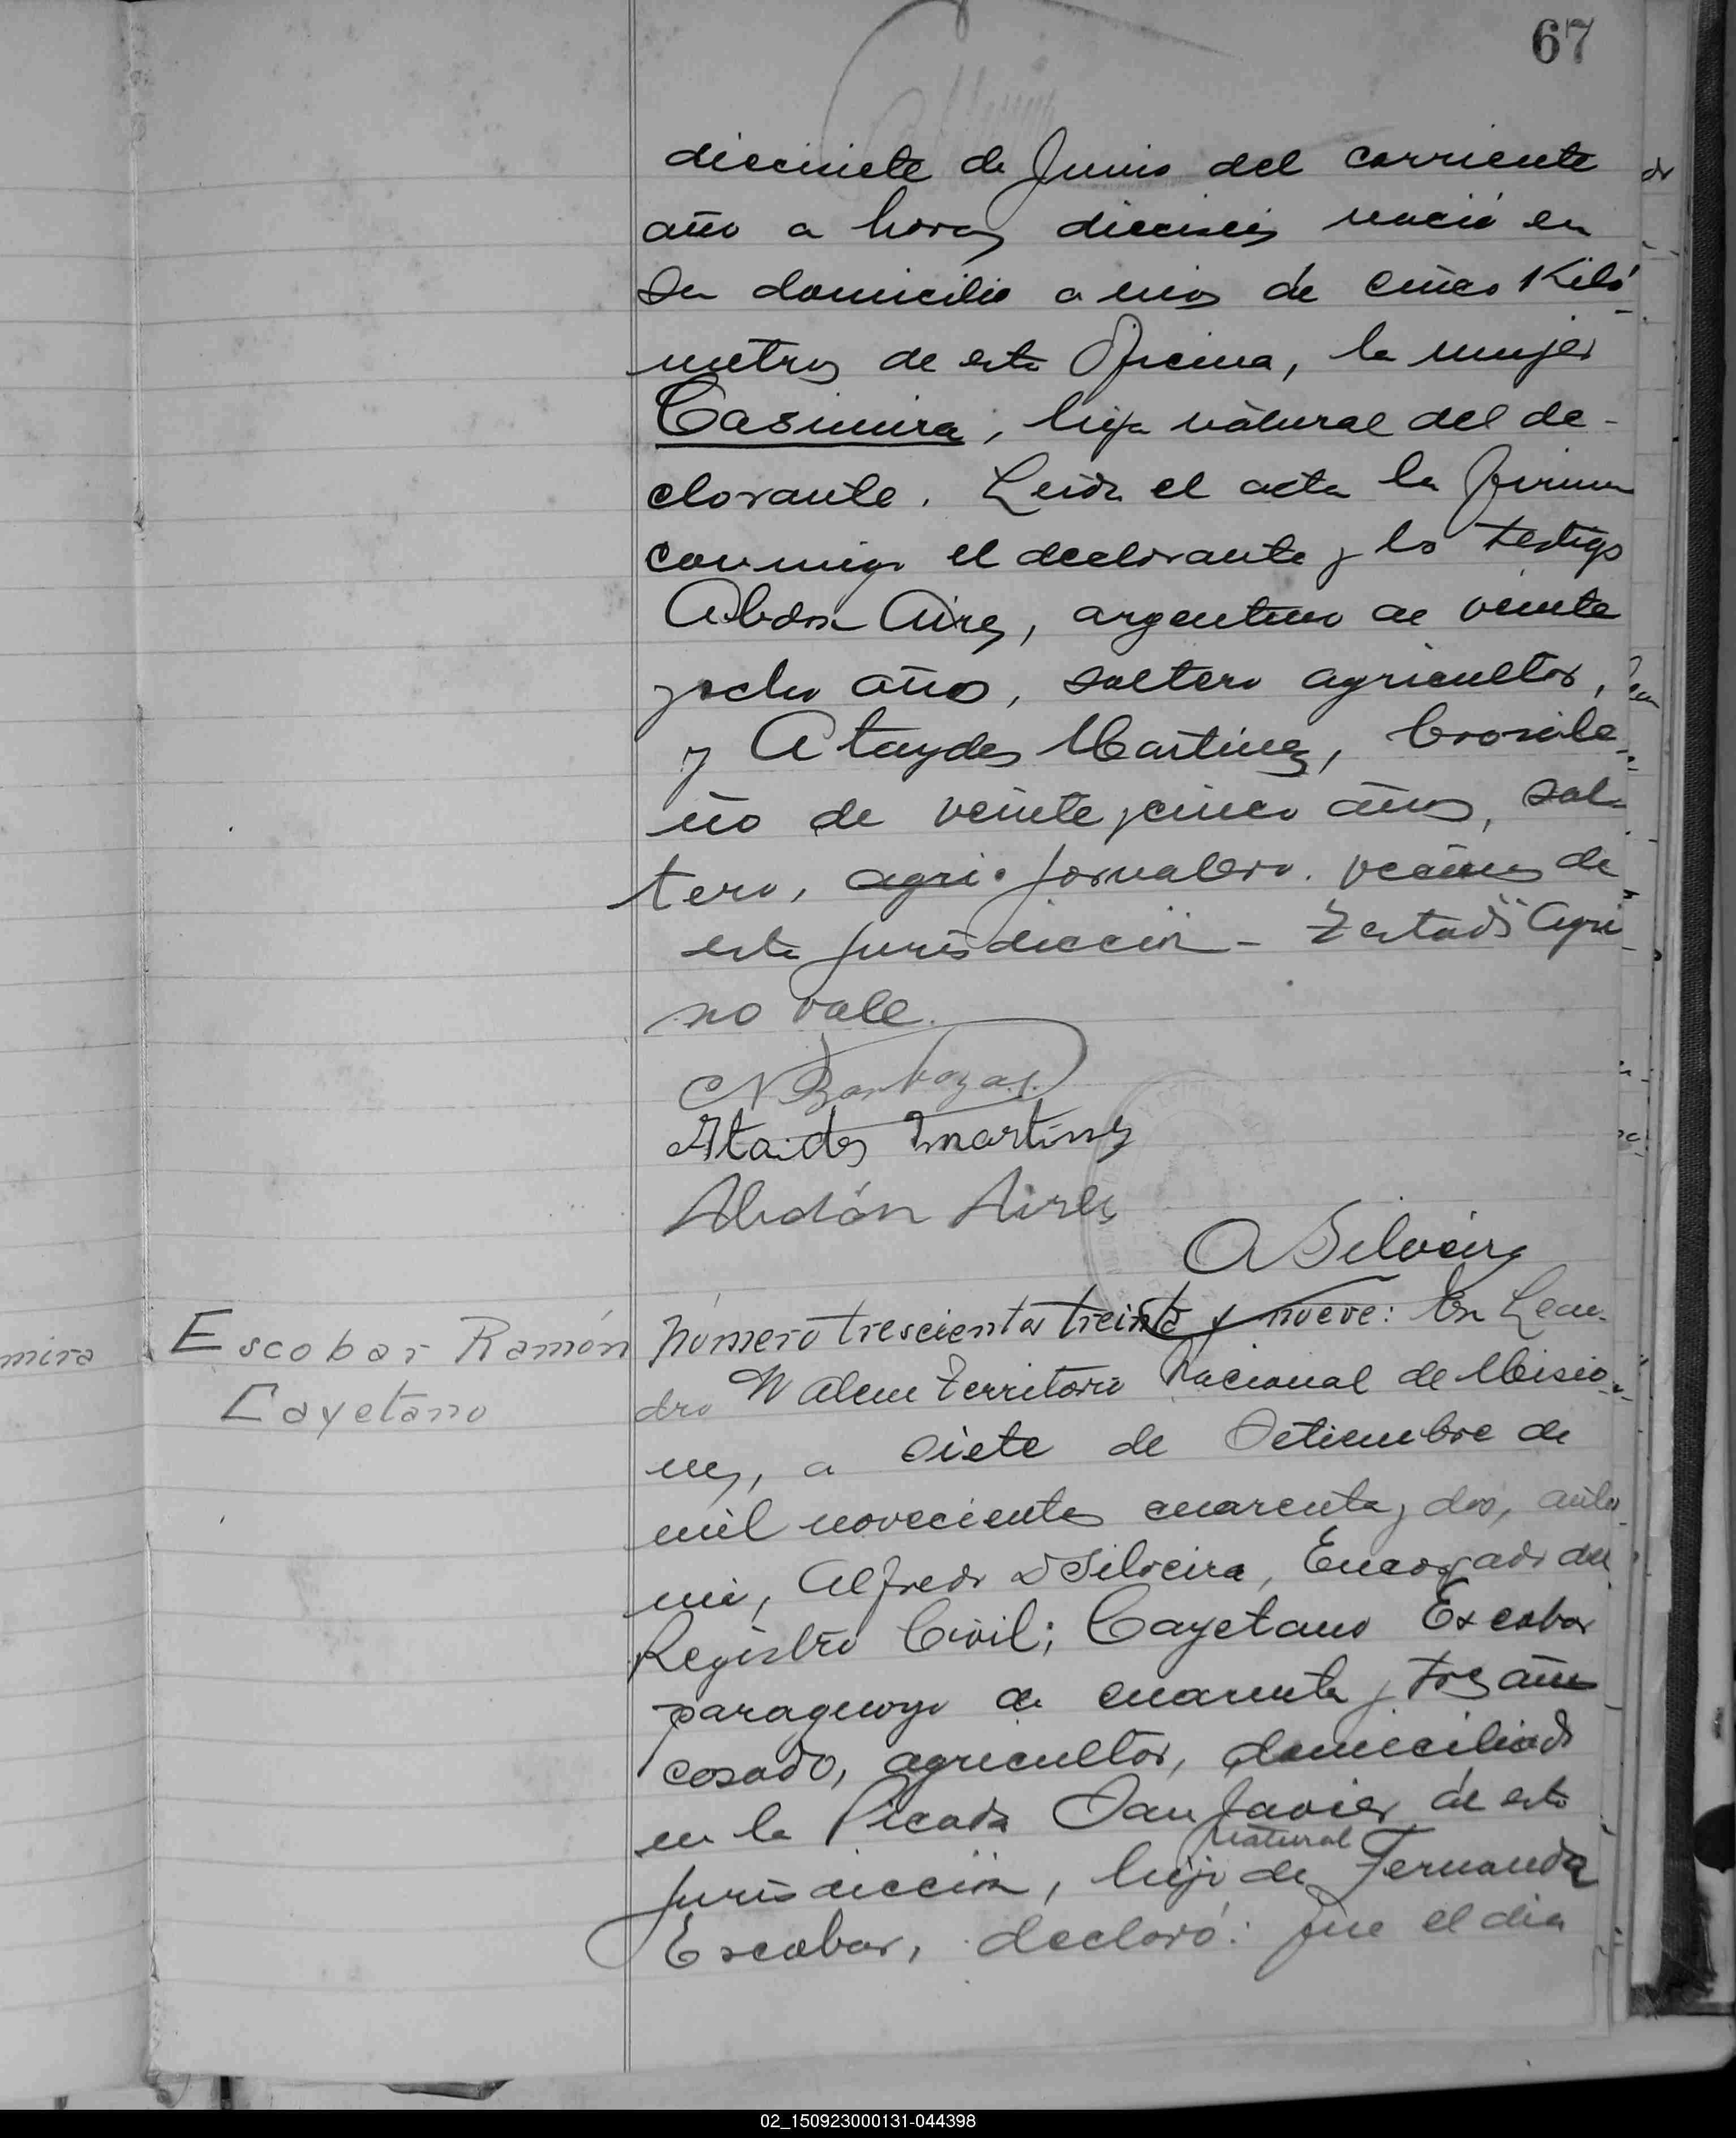 67
diecisiete de Junio del corriente
año a horas dieciseis nació en
su domicilio a mas de cinco Kiló-
metros de esta Oficina, la mujer
Casimira, hija natural del de-
clarante. Leida el acta la firman
conmigo el declarante y los testigos
Abdon Aires, argentino de veinte
y ocho años, soltero agricultor,
y Ataydes Martinez, brasile-
ño de veinte y cinco años, sol-
tero, agri. jornalero. vecinos de
esta jurisdiccion - Testado Agri
no vale.
N Barboza
Ataides Martines
Abdón Aires
A Silveira
mira
Escobar Ramón
Cayetano
Número trescientos treinta y nueve: En Lean-
dro N Alem Territorio Nacional de Misio-
nes, a siete de Setiembre de
mil novecientos cuarenta y dos, ante
mi, Alfredo D Silveira, Encargado del
Registro Civil; Cayetano Escobar
paraguayo de cuarenta y tres años
casado, agricultor, domiciliado
en la Picada San Javier de esta
natural
jurisdiccion, hijo de Fernanda
Escobar, declaró: que el dia
02_150923000131-044398